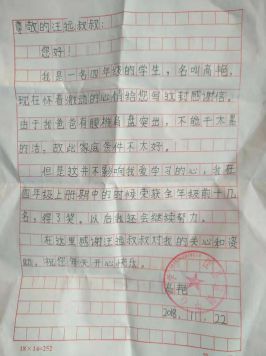 尊敬的汪远叔叔：
您好！
我是一名四年级的学生，名叫高艳，
现在怀着激动的心情给您写这封感谢信。
由于我爸爸有腰椎间盘突出，不能干太累
的活，故此家庭条件不太好。
但是这并不影响我爱学习的心，我在
四年级上册期中的时候荣获全年级前十几
名，得了奖。以后我还会继续努力。
在这里感谢汪远叔叔对我的关心和
祝您每天开心快乐。
高艳
2018.11.22
18×14=252